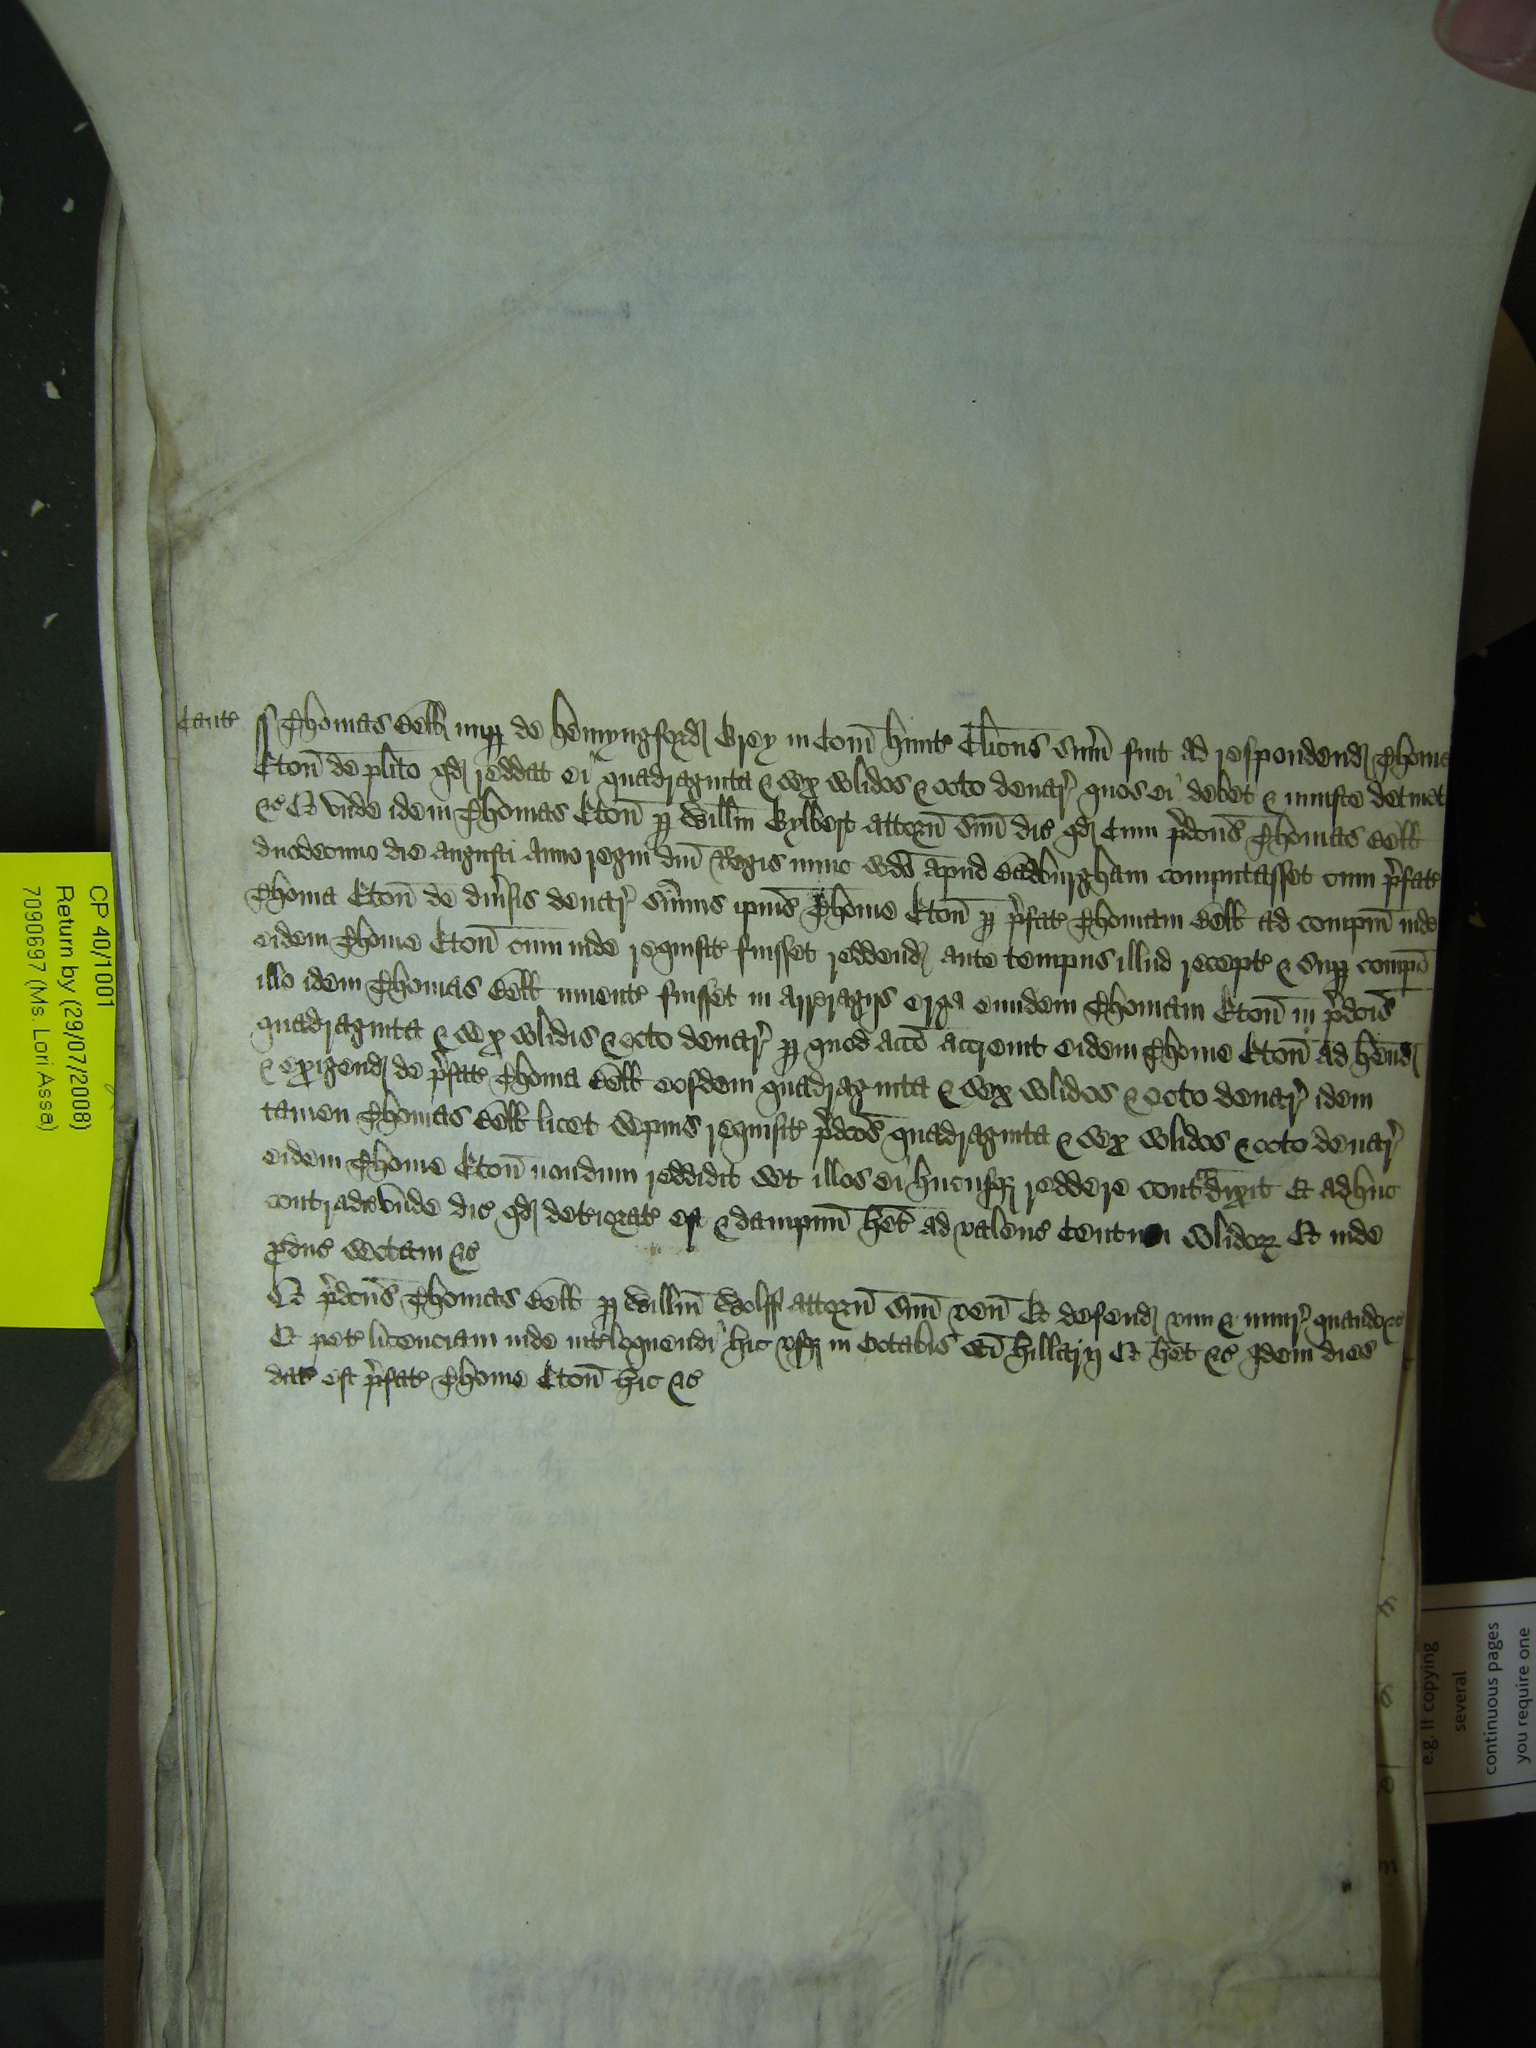 Cant~
Thomas Bell nup de hemyngford Grey in Com̄ hunt~ Clicus Sum̄ fuit ad respondend Thome
Eton̄ de plito qd reddat ei quadraginta & sex solidos & octo denar̄ quos ei debet & iniuste detinet
&c Et vnde idem Thomas Eton̄ p Willm̄ Gylbert attorn̄ Suū dic qd Cum p̄dcus Thomas Bell
duodecimo die augusti Anno regni dn̄i Regis nunc scdo apud Badburgham computasset cum p̄fat~
Thoma Eton̄ de diu̓sis denar̄ Sūmis ipius Thome Eton̄ p p̄fat~ Thomam Bell ad compm̄ inde
eidem Thome Eton̄ cum inde requisit~ fuisset reddend ante tempus illud recept~ & Sup compō
illo idem Thomas Bell inuent~ fuisset in Arreragijs erga eundem Thomam Eton̄ in p̄dcis
quadraginta & sex solidis & octo denar̄ p quod accō accreuit eidem Thome Eton̄ ad hēnd
& exigend de p̄fat~ Thoma Bell eosdem quadraginta & sex solidos & octo denar̄ idem
tamen Thomas Bell licet sepius requisit~ p̄dcos quadraginta & sex solidos & octo denar̄
eidem Thome Eton̄ nondum reddidit set illos ei hucusq reddere contᵃdixit Et adhuc
contradic vnde dic qd deteriorat~ est & dampnū hēt ad valenc Centum solidor Et inde
pduc sectam &c
Et p̄dcus Thomas Bell p Willm̄ Wolff attorn̄ Suū ven̄ Et defend vim & iniur̄ quando &c
Et pet~ licenciam inde int̓loquendi hic vsq in Octabis Sci hillarij Et hēt &c Idem dies
dat~ est p̄fat~ Thome Eton̄ hic &c
CP 40/1001
Return by (29/07/2008)
7090697 (Ms. Lori Assa)
e.g. If copying
several
continuous pages
you require one